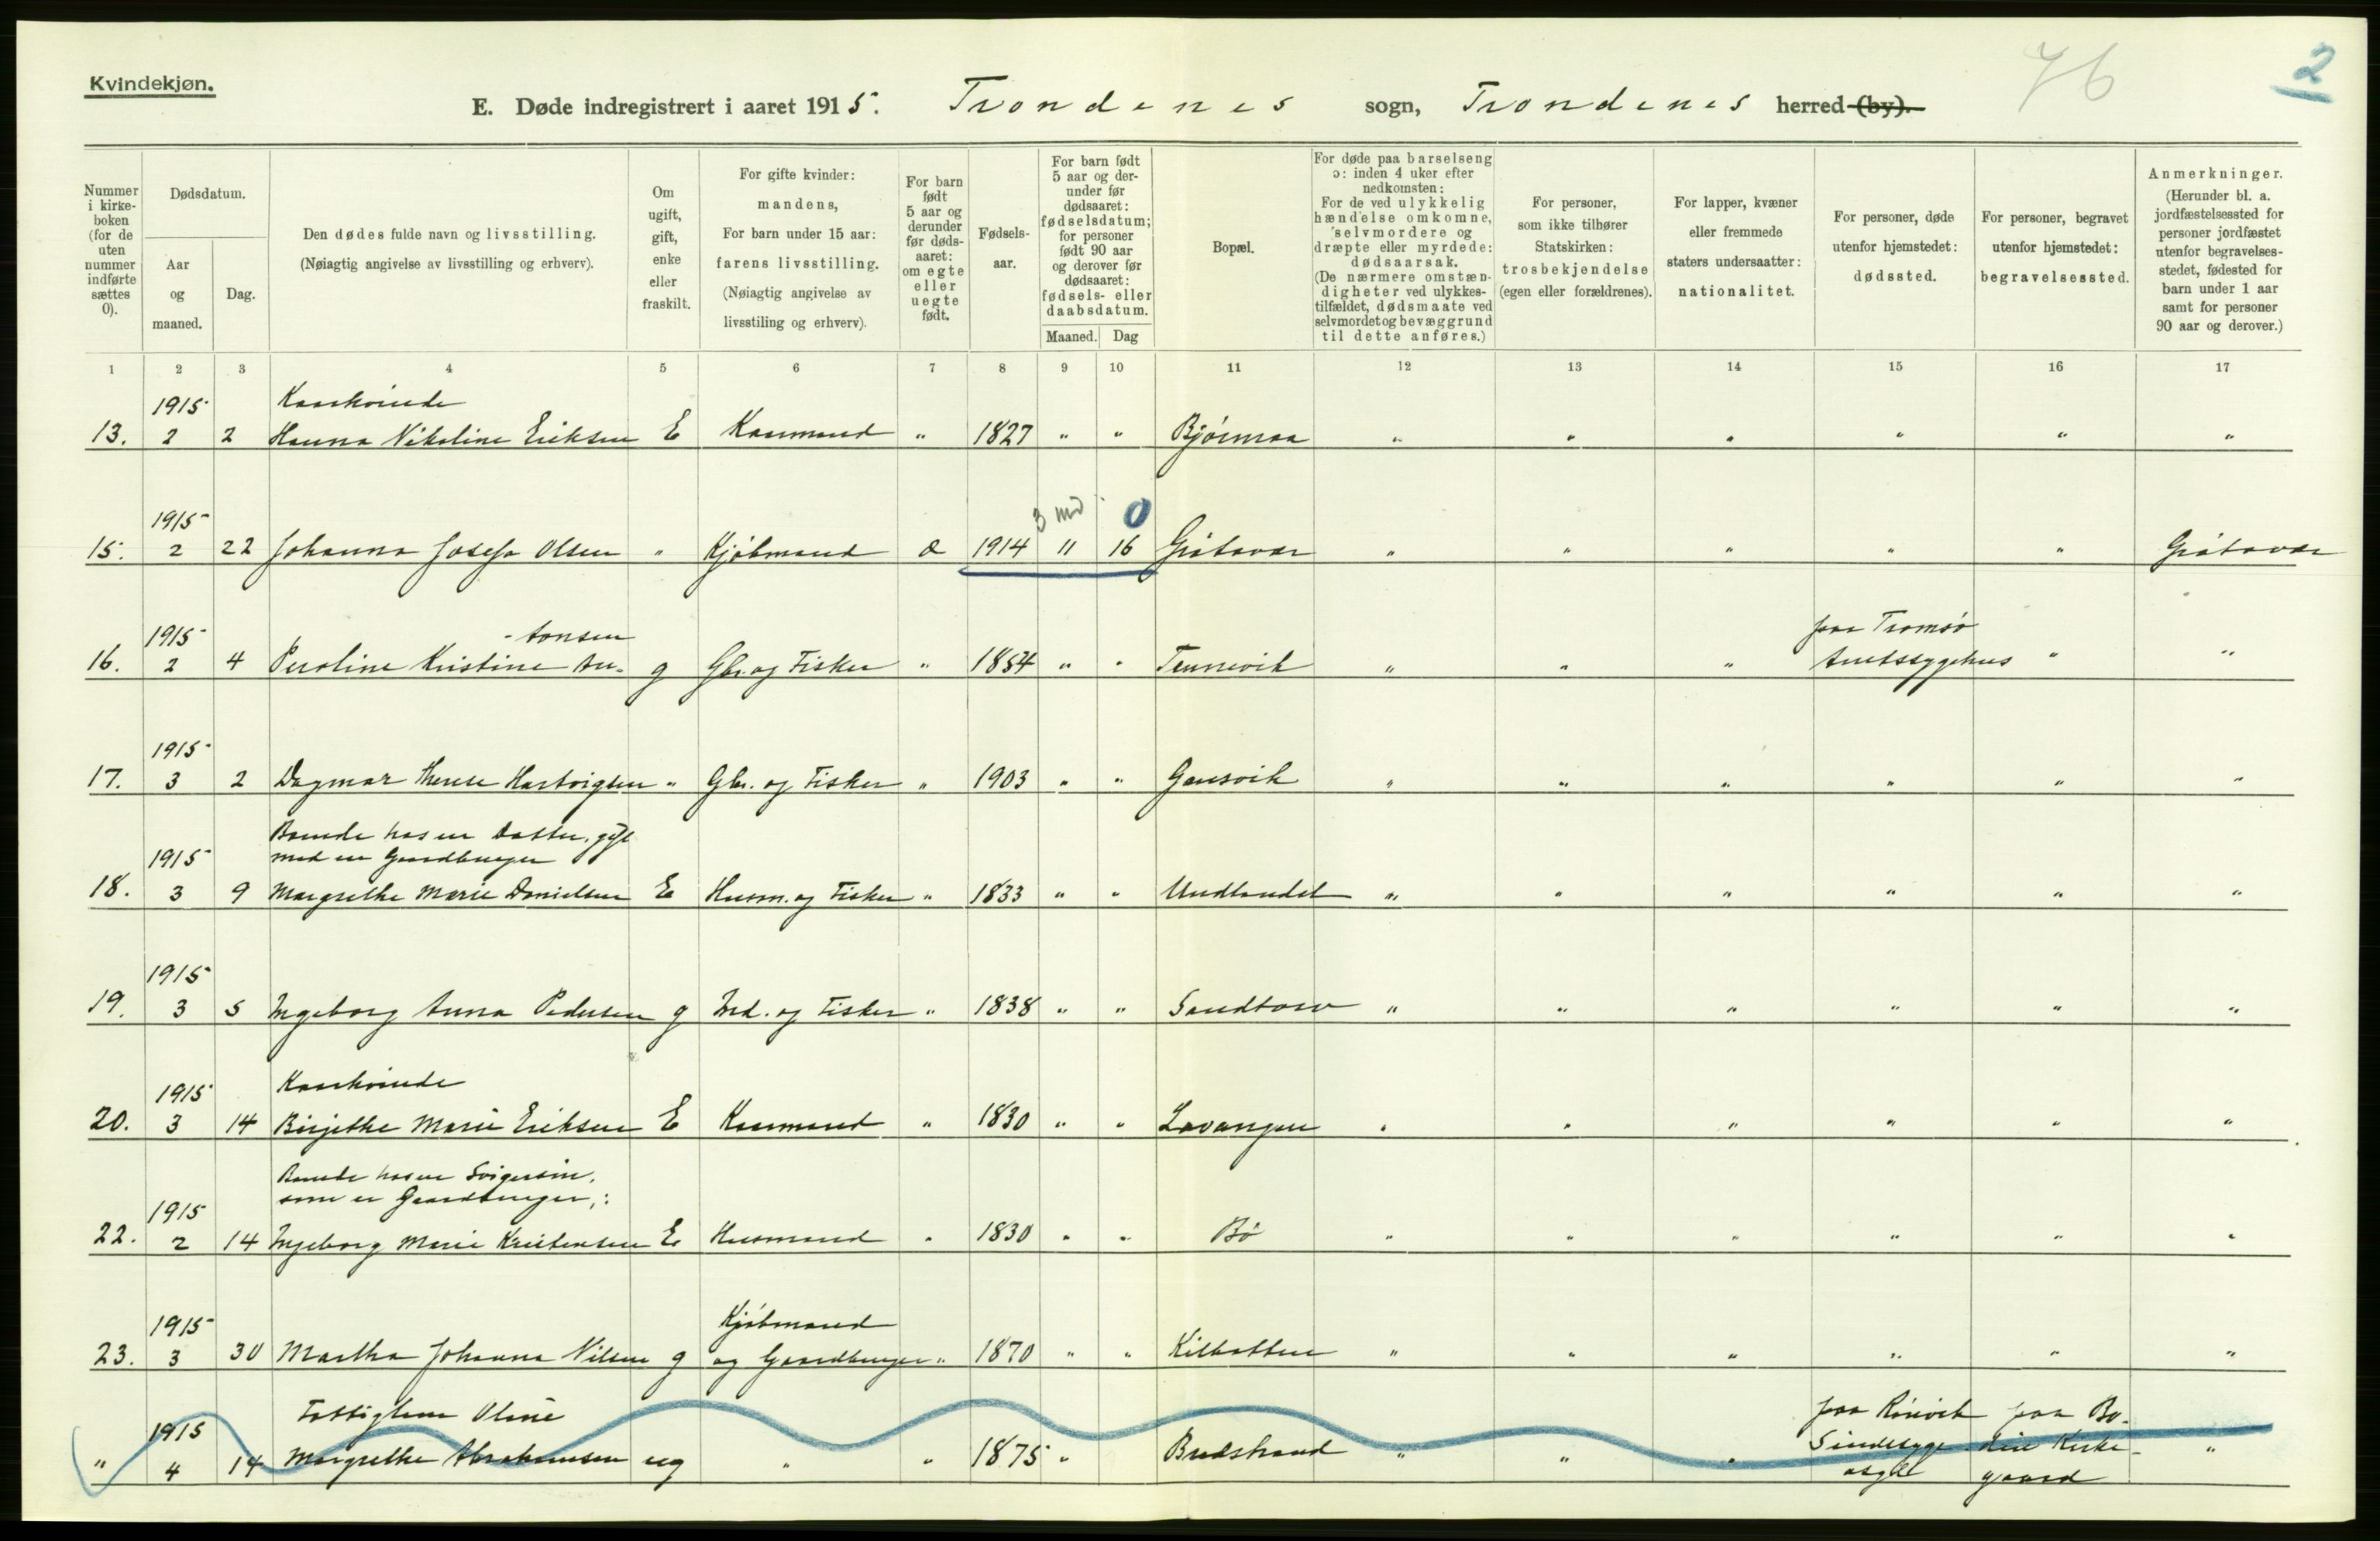 Kvindekjøn.
76
2
E. Døde indregistrert i aaret 1915. Trondenes sogn, Trondenes herred (by).
Nummer i kirkeboken (for de uten nummer indførte sættes 0).
Dødsdatum.
Aar og maaned.
Dag.
Den dødes fulde navn og livsstilling.
(Nøiagtig angivelse av livsstilling og erhverv).
Om ugift, gift, enke eller fraskilt.
For gifte kvinder: mandens, For barn under 15 aar: farens livsstilling. (Nøiagtig angivelse av livsstiling og erhverv).
For barn født 5 aar og derunder før dødsaaret: om egte eller uegte født.
Fødselsaar.
For barn født 5 aar og derunder før dødsaaret: fødselsdatum; for personer født 90 aar og derover før dødsaaret: fødsels- eller daabsdatum.
Maaned. Dag
Bopæl.
For døde paa barselseng ɔ: inden 4 uker efter nedkomsten: For de ved ulykkelig hændelse omkomne, selvmordere og dræpte eller myrdede: dødsaarsak. (De nærmere omstændigheter ved ulykkestilfældet, dødsmaate ved selvmordet og bevæggrund til dette anføres.)
For personer, som ikke tilhører Statskirken: trosbekjendelse (egen eller forældrenes).
For lapper, kvæner eller fremmede staters undersaatter: nationalitet.
For personer, døde utenfor hjemstedet: dødssted.
For personer, begravet utenfor hjemstedet: begravelsessted.
Anmerkninger. (Herunder bl. a. jordfæstelsessted for personer jordfæstet utenfor begravelsesstedet, fødested for barn under 1 aar samt for personer 90 aar og derover.)
1 2 3 4 5 6 7 8 9 10 11 12 13 14 15 16 17
1915 Kaarkvinde
13. 2 2 Hanna Nikoline Eriksen E Kaarmand " 1827 " " Bjørnaa " " " " " "
1915 3 md 0
15. 2 22 Johanna Josefa Olsen " Kjøbmand 1914 11 16 Grøtavær " " " " " Grøtavær
1915 -tonsen paa Tromsø
16. 2 4 Peroline Kristine An- g Gbr. og Fisker " 1854 " " Tennevik " " " Amtssygehus " "
1915
17. 3 2 Dagmar Therese Hartvigsen " Gbr. og Fisker " 1903 " " Gausvik " " " " " "
Boende hos en Datter, gift
1915 med en Gaardbruger
18. 3 9 Margrethe Marie Danielsen E Husm. og Fisker " 1833 " " Undlandet " " " " " "
1915
19. 3 5 Ingeborg Anna Pedersen g Ind. og Fisker " 1838 " " Sandtorv " " " " " "
1915 Kaarkvinde
20. 3 14 Birjethe Marie Eriksen E Kaarmand " 1830 " " Lavangen " " " " " "
Boende hos en Svigersøn,
1915 som er Gaardbruger,:
22. 2 14 Ingeborg Marie Kristensen E Husmand " 1830 " " Bø " " " " " "
1915 Kjøbmand
23. 3 30 Martha Johanna Nilsen g og Gaardbruger " 1870 " " Kilbotten " " " " " "
Fattiglem Oline paa Rønvik paa Bo-
1915 Sindssyge- din Kirke-
" 4 14 Margrethe Abrahamsen ug " " 1875 " Bredstrand " " " asyl gaard "